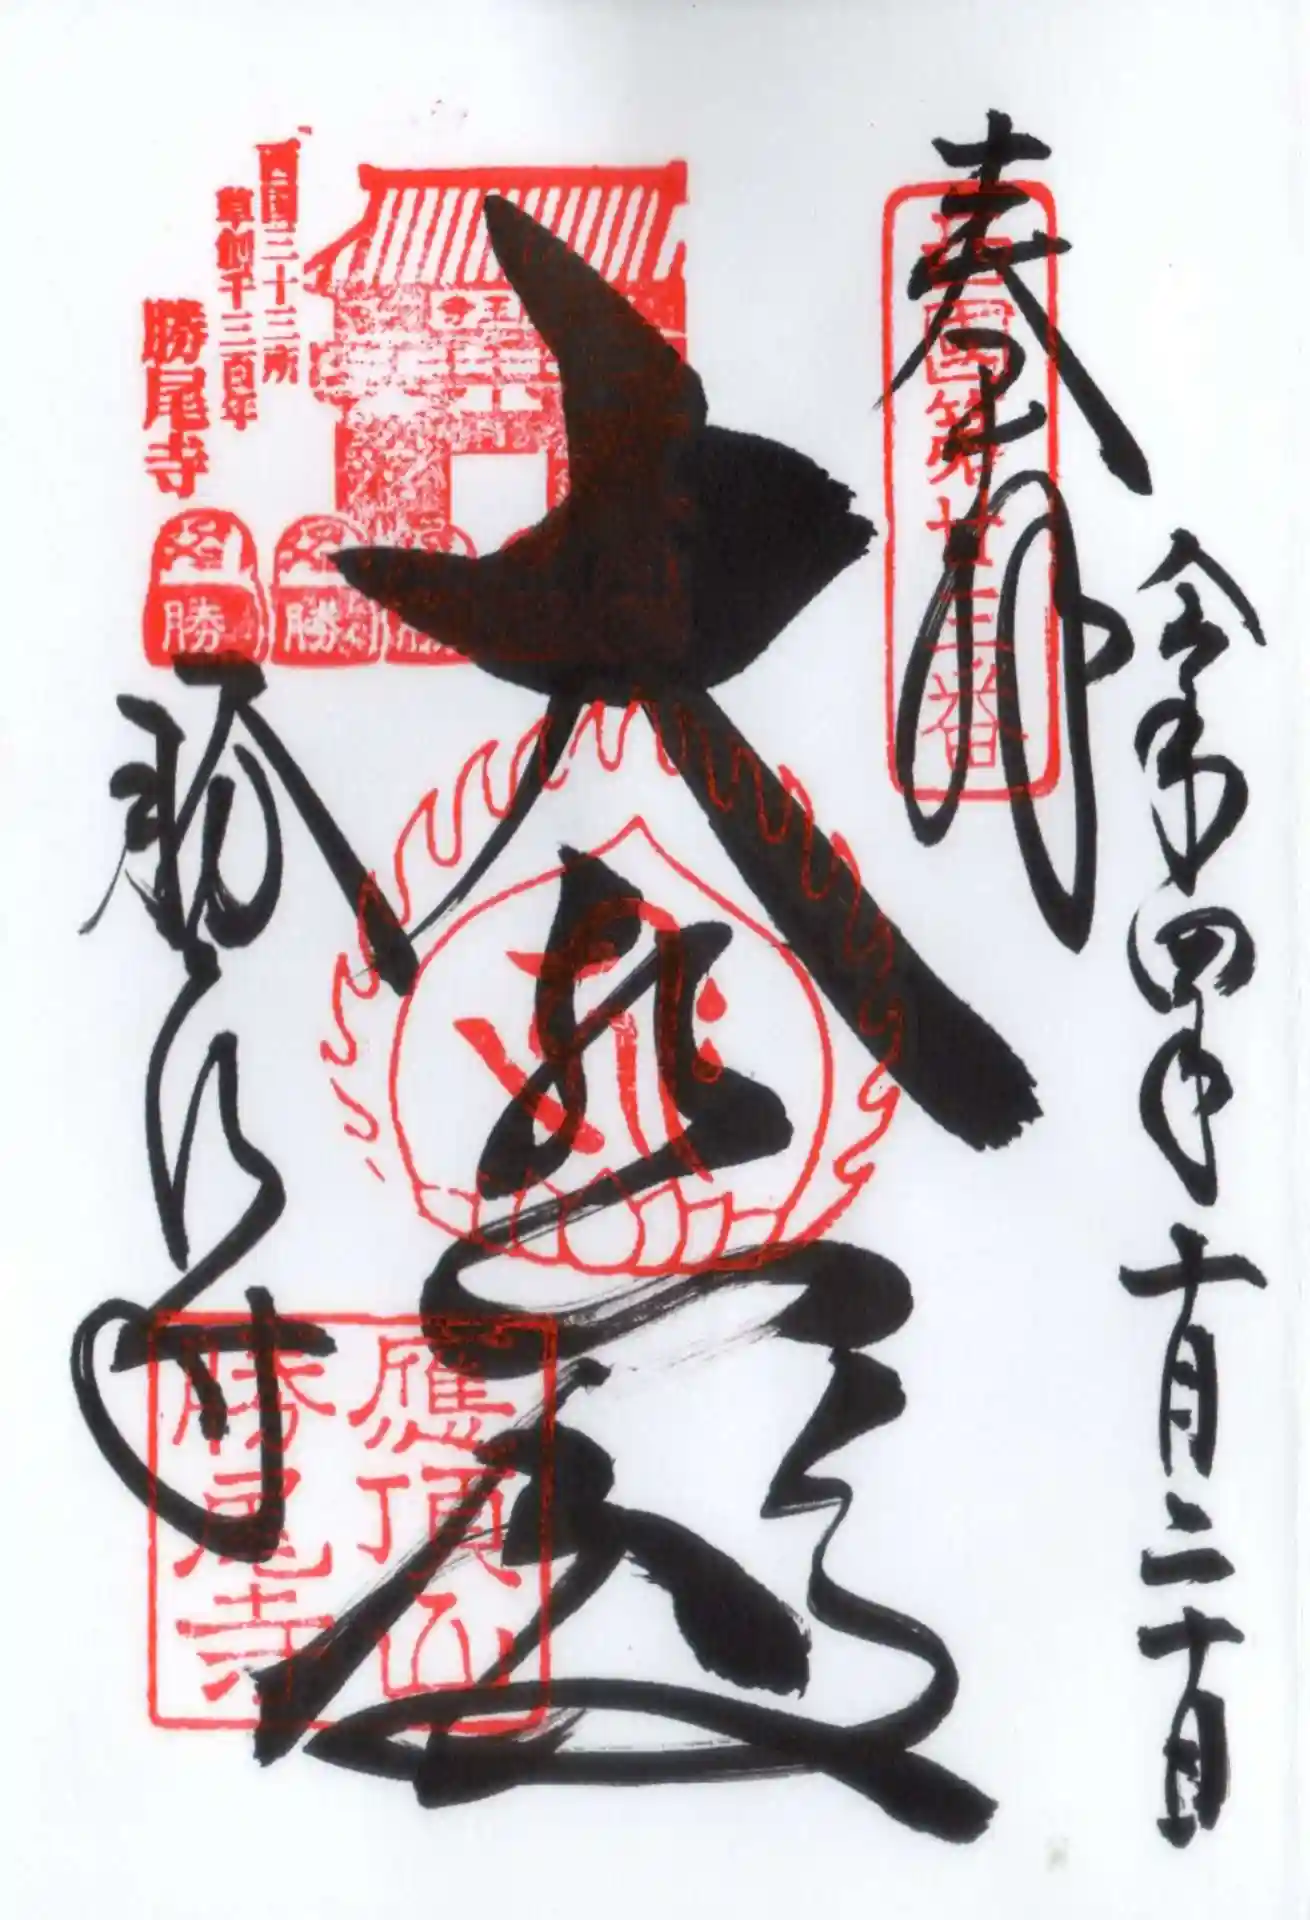 令和四年十月二十日
奉拝
西国第廿三番
大悲殿
西国三十三所
草創千三百年
勝尾寺
勝
勝
勝
勝尾寺
應頂山
勝尾寺